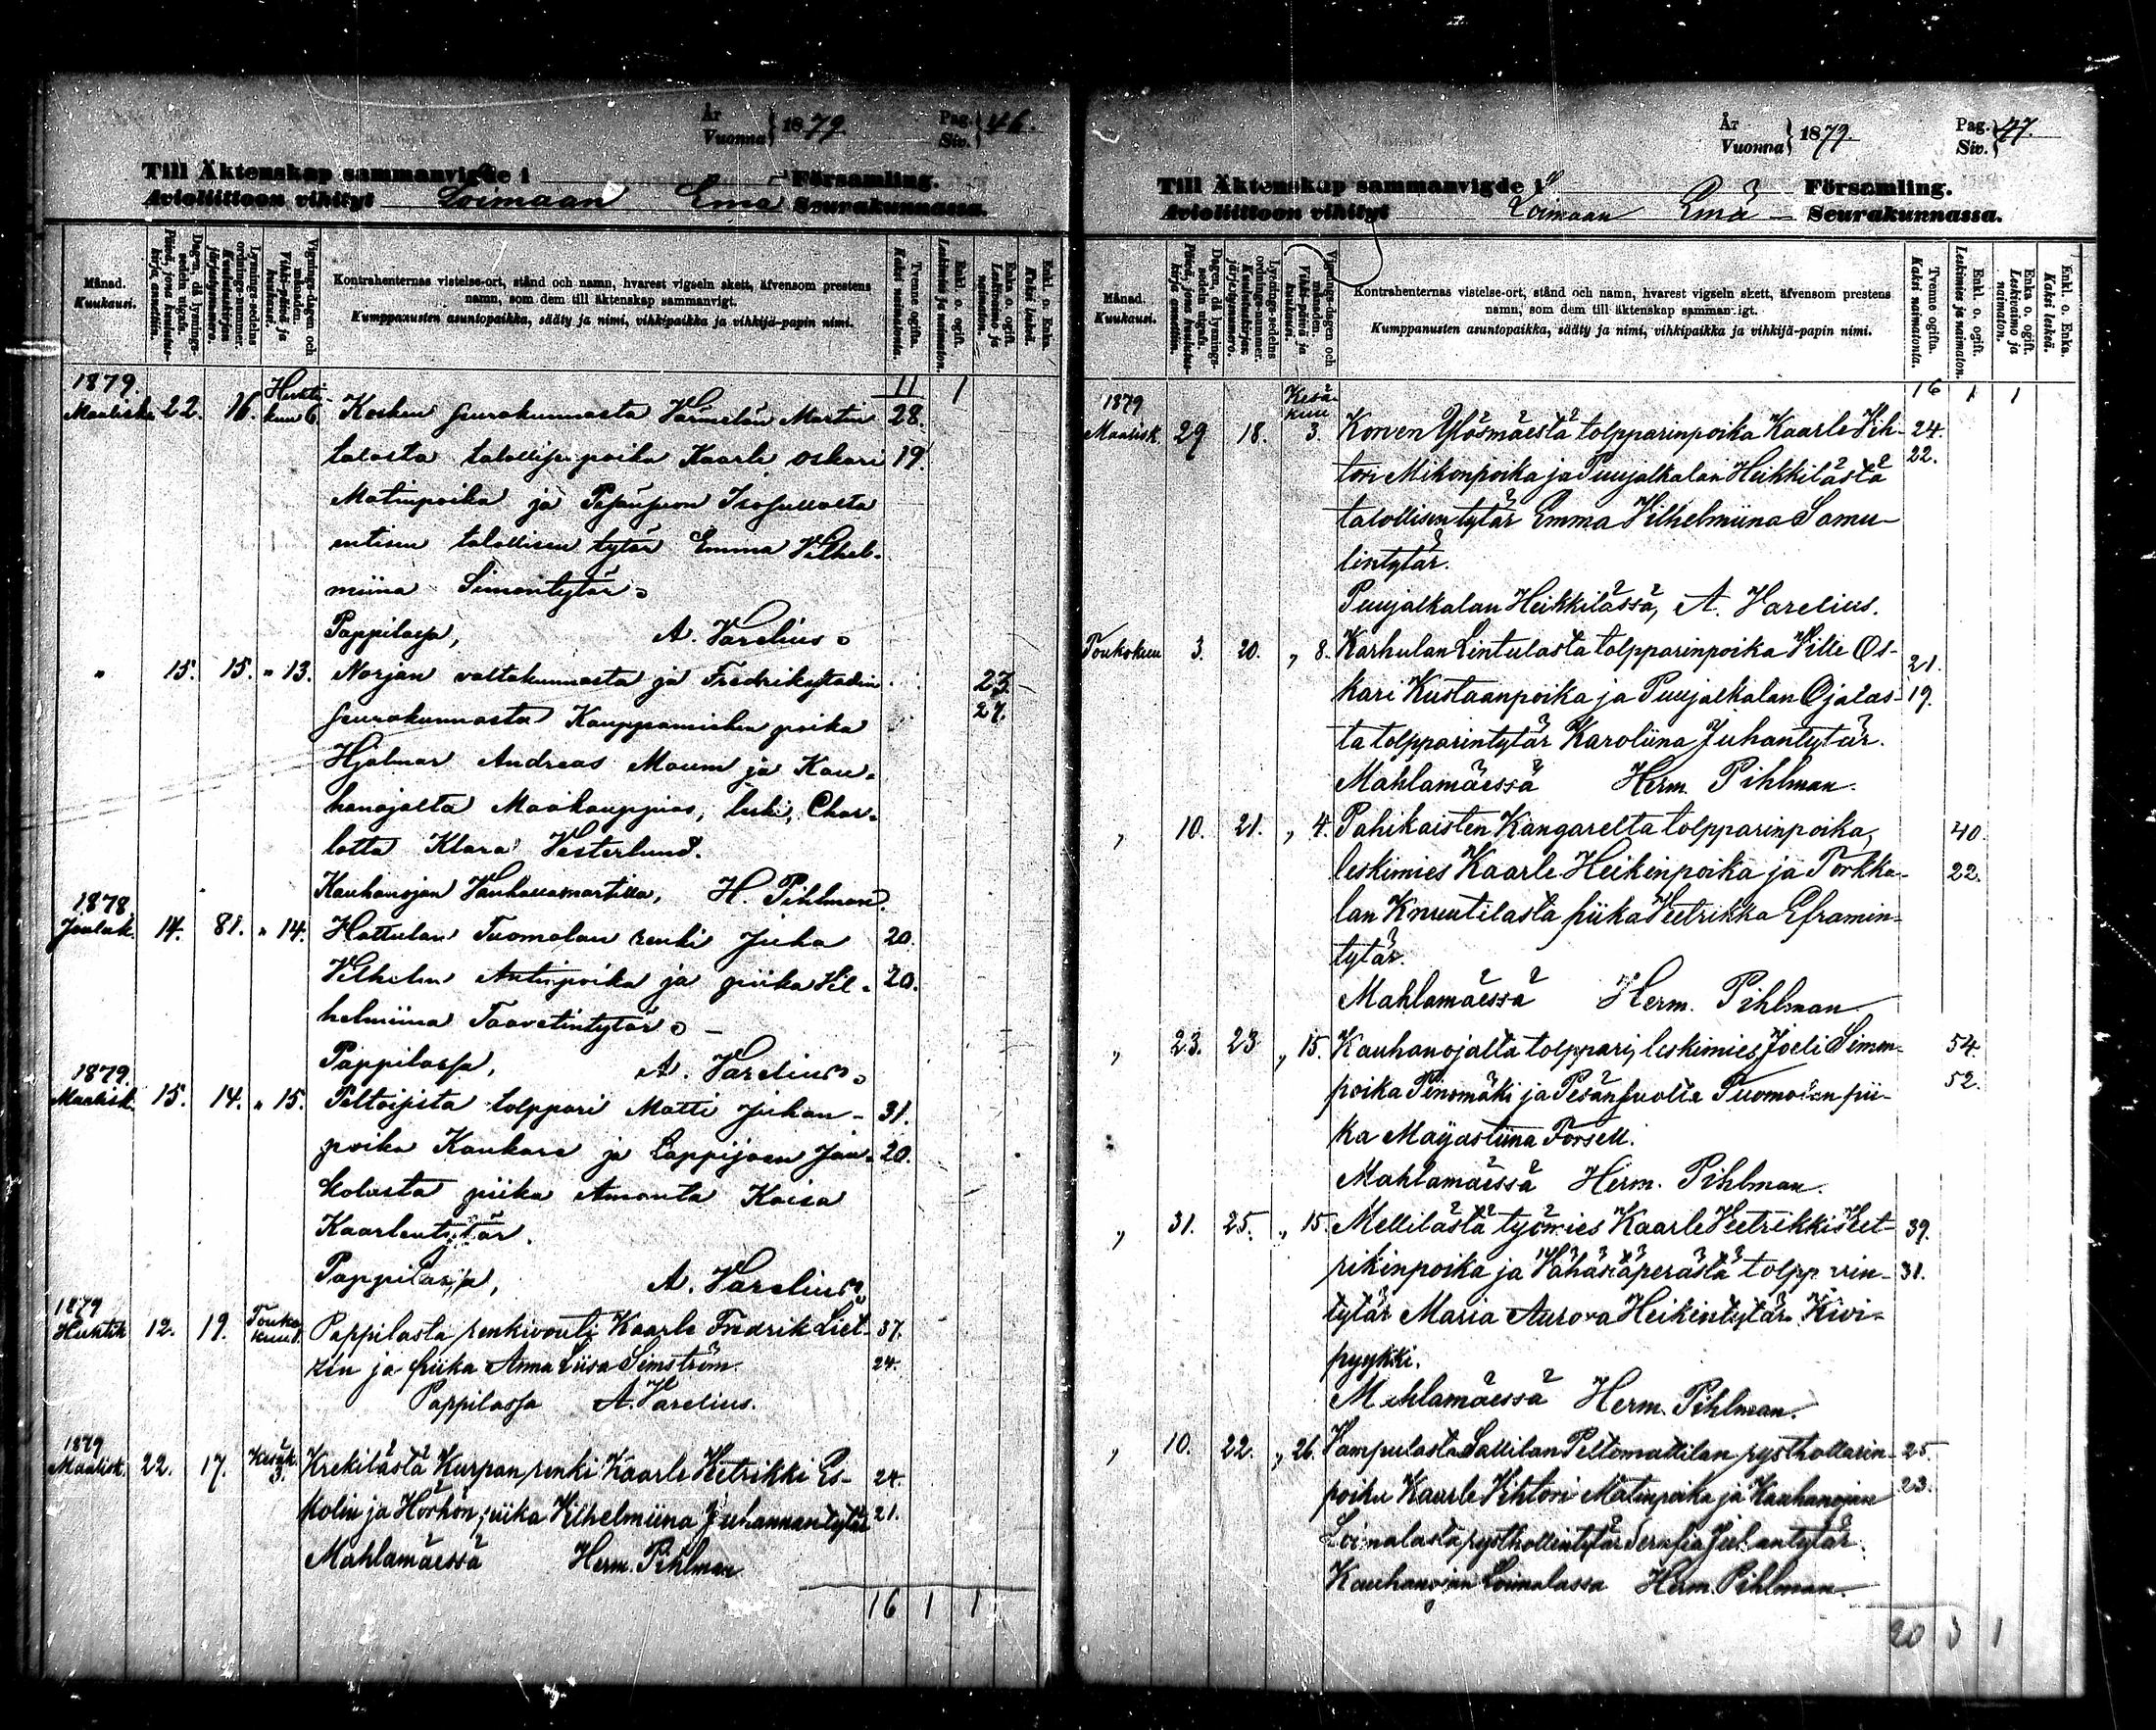 År
Vuonna } 1879
Pag.
Siv. } 46.
Till Äktenskap sammanvigde i Församling.
Avioliittoon vihityt Loimaan Emä Seurakunnassa.
Månad.
Kuukausi.
Dagen, då lysnings-sedeln utgafs.
Päivä, jona kuulutus-kirja annettiin.
Lysnings-sedelns ordnings-nummer.
Kuulutuskirjan järjestysnumero.
Vignings-dagen och månaden.
Vihki-päivä ja kuukausi.
Kontrahenternas vistelse-ort, stånd och namn, hvarest vigseln skett, äfvensom prestens
namn, som dem till äktenskap sammanvigt.
Kumppanusten asuntopaikka, sääty ja nimi, vihkipaikka ja vihkijä-papin nimi.
Tvenne ogifta.
Kaksi naimatonta.
Enkl. o. ogift.
Leskimies ja naimaton.
Enka o. ogift.
Leskivaimo ja naimaton.
Enkl. o. Enka.
Kaksi leskeä.
11 1
1879.
Maalisk. 22. 16. Huhti-
kuu 6. Kosken seurakunnasta Martin 28.
talosta talollisen poika Kaarle Oskari 19.
Matinpoika ja
entisen talollisen tytär Emma Vilhel-
miina Simontytär.
Pappilassa, A. Varelius.
" 15. 15. " 13. Norjan valtakunnasta ja Fredrikstadin 23.
seurakunnasta Kauppamiehen poika 27.
Hjalmar Andreas Moum ja Kau-
hanojalta Maakauppias, leski, Char-
lotta Klara Vesterlund.
Kauhanojan Vanhallamartilla, H. Pihlman.
1878
Jouluk. 14. 81. " 14. Hattulan Tuomolan renki Juha 20.
Vilhelm Antinpoika ja piika Vil- 20.
helmiina Taavetintytär.
Pappilassa, A. Varelius.
1879.
Maalisk. 15. 14. " 15. Peltoisista tolppari Matti Juhan- 31.
poika Kankare ja Lappijoen Jaa- 20.
kolasta piika Amanta Kaisa
Kaarlentytär.
Pappilassa, A. Varelius.
1879
Huhtik 12. 19. Touko
kuu Pappilasta renkivouti Kaarle Fredrik Liet- 37.
zén ja piika Anna Liisa Simström. 24.
Pappilassa A. Varelius.
1879
Maalisk. 22. 17. Kesäk.
3. Krekilästä Kurpan renki Kaarle Veetrikki Es- 24.
kolin ja Hörhön piika Vilhelmiina Juhannantytär 21.
Mahlamäessä Herm. Pihlman
16 1 1
År
Vuonna } 1879.
Pag.
Siv. } 47.
Till Äktenskap sammanvigde i Församling.
Avioliittoon vihityt Loimaan Emä Seurakunnassa.
Månad.
Kuukausi.
Dagen, då lysnings-sedeln utgafs.
Päivä, jona kuulutus-kirja annettiin.
Lysnings-sedelns ordnings-nummer.
Kuulutuskirjan järjestysnumero.
Vignings-dagen och månaden.
Vihki-päivä ja kuukausi.
Kontrahenternas vistelse-ort, stånd och namn, hvarest vigseln skett, äfvensom prestens
namn, som dem till äktenskap samman igt.
Kumppanusten asuntopaikka, sääty ja nimi, vihkipaikka ja vihkijä-papin nimi.
Tvenne ogifta.
Kaksi naimatonta.
Enkl. o. ogift.
Leskimies ja naimaton.
Enka o. ogift.
Leskivaimo ja naimaton.
Enkl. o. Enka.
Kaksi leskeä.
16 1 1
1879 Kesä-
kuu
Maalisk. 29 18. 3. Korven Ylösmäestä tolpparinpoika Kaarle Vih- 24.
tori Mikonpoika ja Puujalkalan Heikkilästä 22.
talollisen tytär Emma Vilhelmiina Samu-
lintytär.
Puujalkalan Heikkilässä, A. Varelius.
Toukokuu 3. 20. " 8. Karhulan Lintulasta tolpparinpoika Ville Os- 21.
kari Kustaanpoika ja Puujalkalan Ojalas- 19.
ta tolpparintytär Karoliina Juhantytär.
Mahlamäessä Herm. Pihlman.
" 10. 21. " 4. Pahikaisten Kangarelta tolpparinpoika, 40.
leskimies Kaarle Heikinpoika ja Torkka- 22.
lan Knuutilasta piika Veetrikka Eframin-
tytär.
Mahlamäessä Herm. Pihlman
" 23. 23 " 15. Kauhanojalta tolppari, leskimies Joeli Simon- 54.
poika Penomäki ja Pesänsuolta Tuomolan pii- 52.
ka Majastiina Forsell.
Mahlamäessä Herm. Pihlman.
" 31. 25. " 15. Mellilästä työmies Kaarle Veetrikki Veet- 39.
rikinpoika ja Vähästäperästä tolpparin- 31.
tytär Maria Aurora Heikintytär Kivi-
pyykki.
Mahlamäessä Herm. Pihlman.
" 10. 22. " 26. Vampulasta Sallilan Peltomattilan rysthollarin- 25.
poika Kaarle Vihtori Matinpoika ja Kauhanojan 23.
Loimalasta rysthollintytär Serafia Juhantytär.
Kauhanojan Loimalassa Herm. Pihlman.
20 3 1